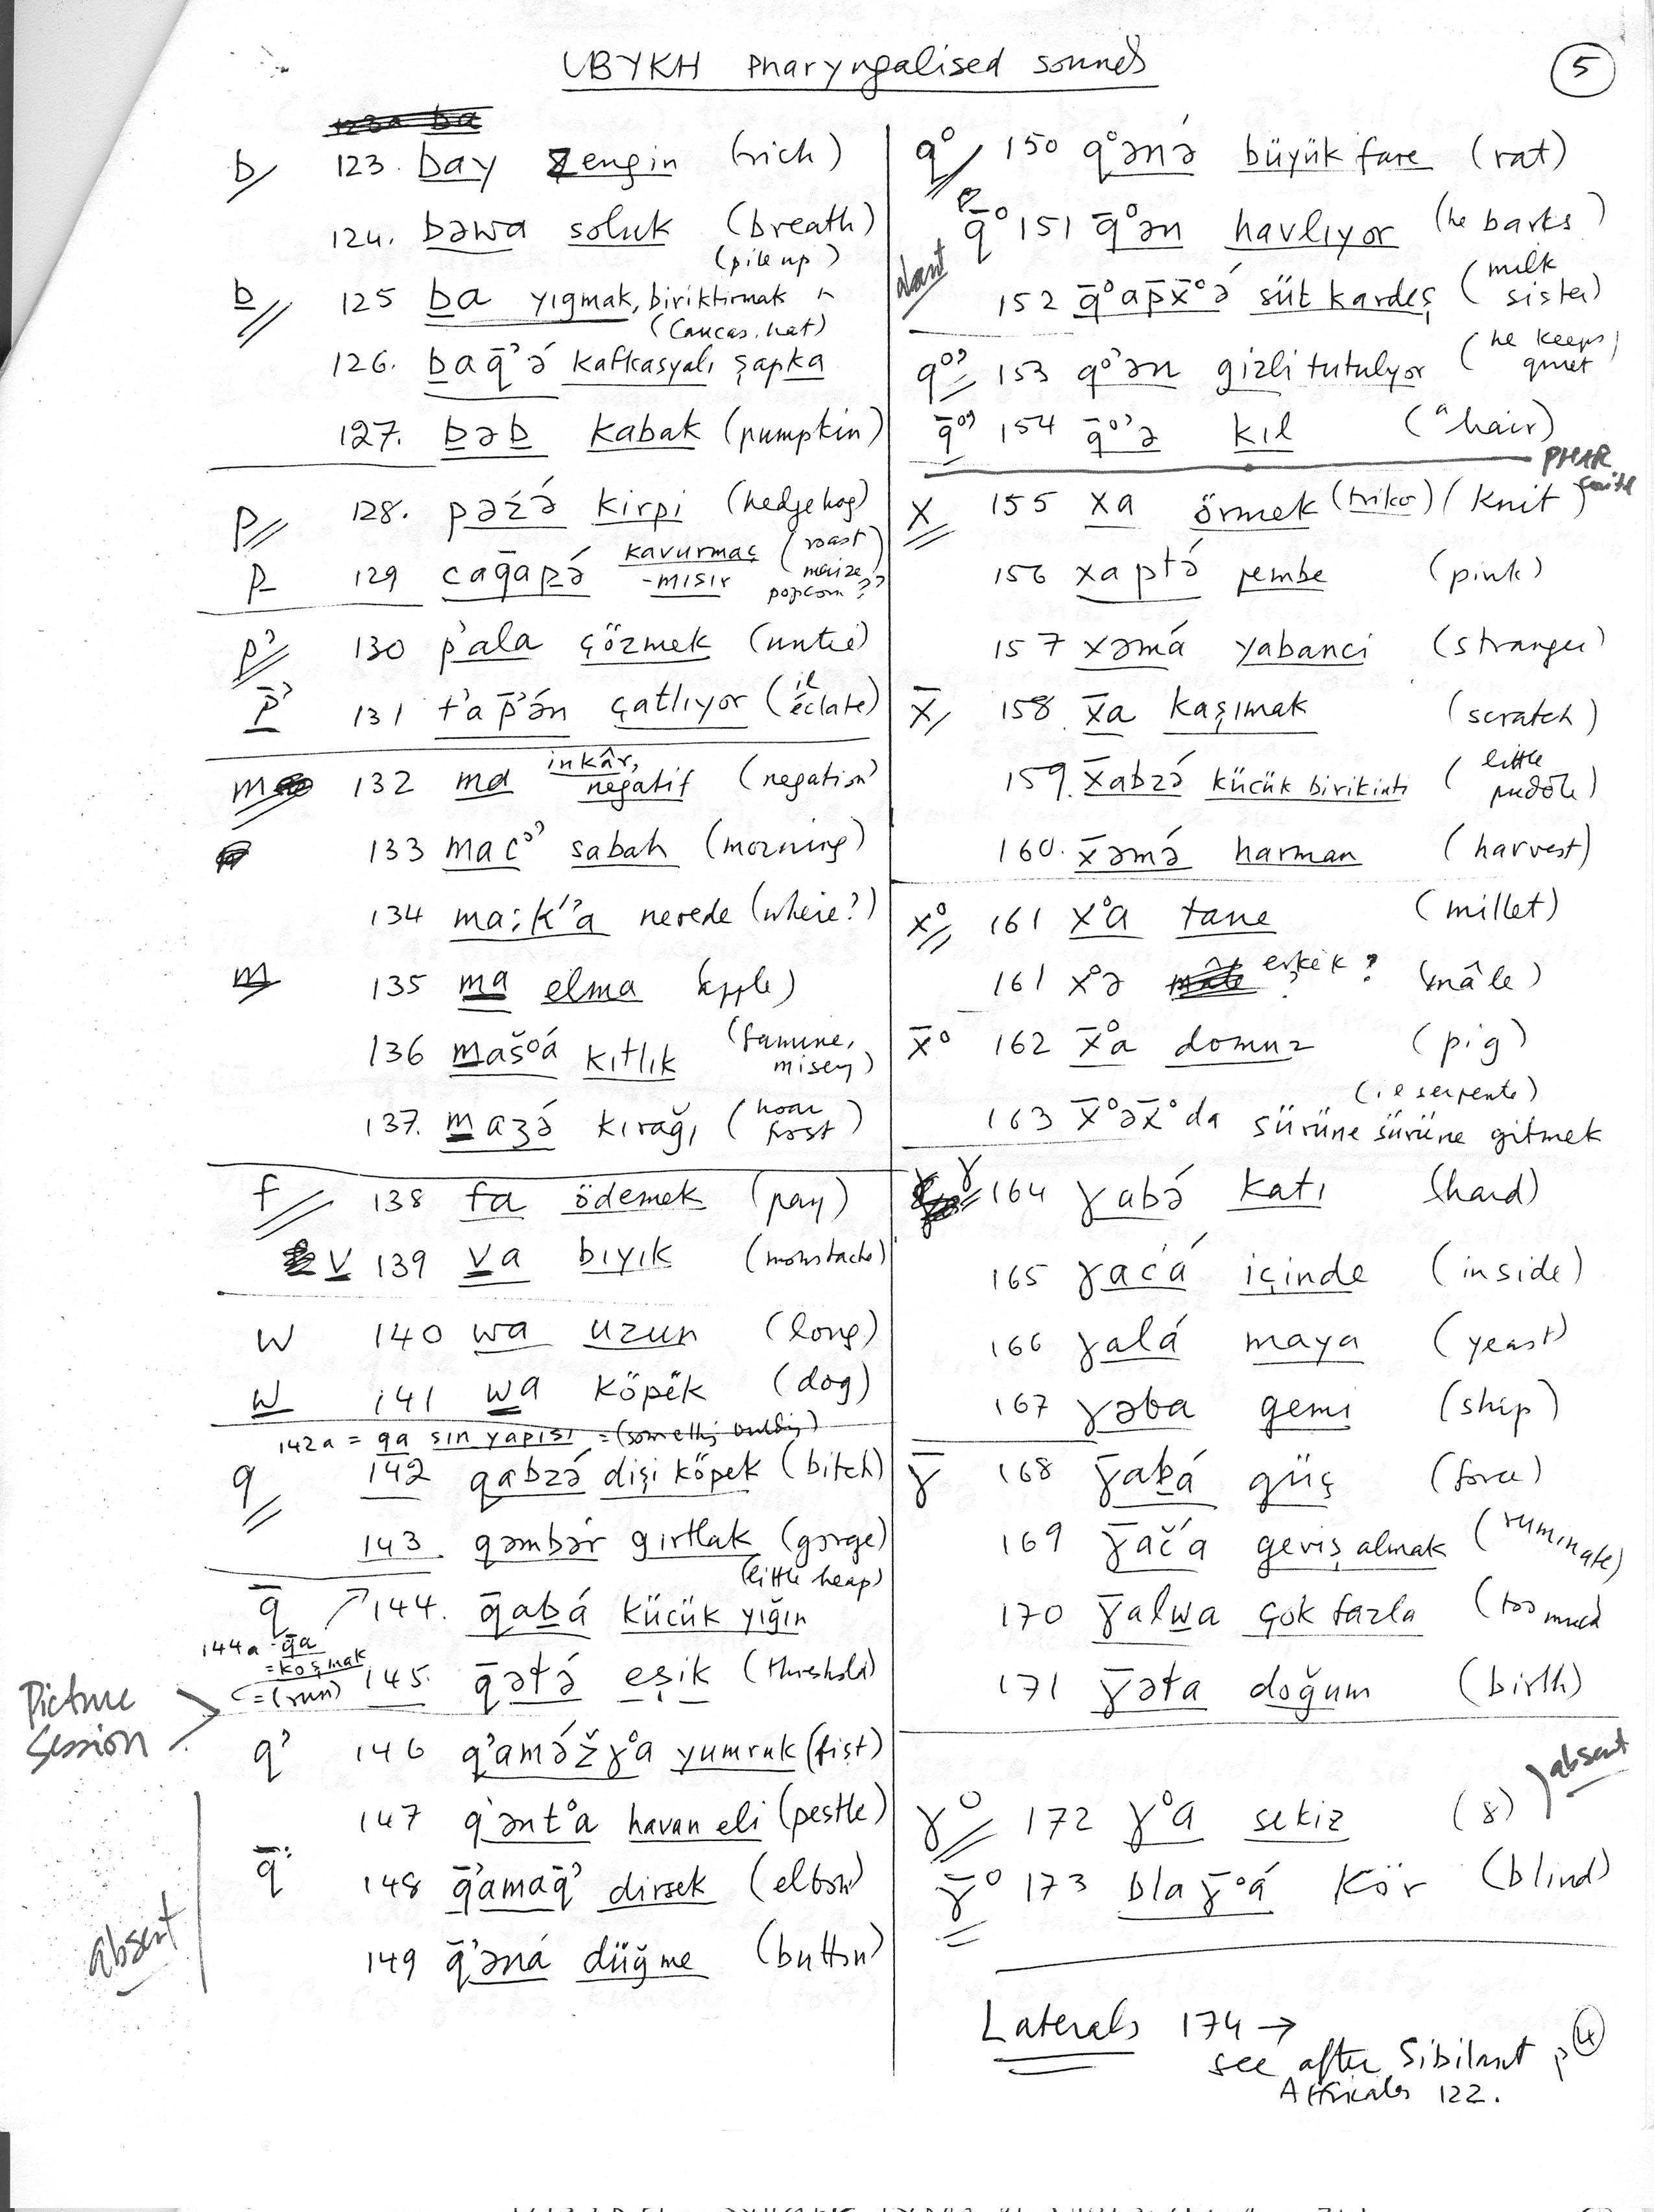 UBYKH Pharyngalised sounds
5
b 123. bay zengin (rich)
124. bəwa soluk (breath)
(pile up)
b̲ 125 b̲a yığmak, biriktirmak
(Caucas. hat)
126. b̲aq̄'ə́ kafkasyalı şapka
127. b̲əb̲ kabak (pumpkin)
p 128. pəźə́ kirpi (hedgehog)
p̲ 129 caq̄ap̲ə́ kavurmaç -mısır (roast maize popcorn??)
p' 130 p'ala çözmek (untie)
p̲̄' 131 t'ap̄'ə́n çatlıyor (il éclate)
m 132 ma inkâr, negatif (negation)
133 mac°' sabah (morning)
134 ma:k''a nerede (where?)
m̲ 135 m̲a elma (apple)
136 m̲aš°á kıtlık (famine, misery)
137. m̲aʒə́ kırağı (hoar frost)
f 138 fa ödemek (pay)
v̲ 139 v̲a bıyık (moustache)
w 140 wa uzun (long)
w̲ 141 w̲a köpek (dog)
142a = qa sın yapısı =
q 142 qabzə́ dişi köpek (bitch)
143 qəmbə́r gırtlak (gorge)
(little heap)
q̄ 144. q̄ab̲á kücük yığın
144a q̄a
= koşmak
= (run)
145. q̄ətə́ eşik (threshold)
Picture Session
q' 146 q'amə́žɣ°a yumruk (fist)
147 q'ənt°a havan eli (pestle)
q̄' 148 q̄'amaq̄' dirsek (elbow)
149 q̄'əná düğme (button)
absent
q° 150 q°ənə́ büyük fare (rat)
q̄° 151 q̄°ən havlıyor (he barks)
152 q̄°ap̄x̄°ə́ süt kardeş (milk sister)
q°' 153 q°'ən gizli tutulyor (he keeps quiet
q̄°' 154 q̄°'ə kıl (a hair)
PHAR
x 155 xa örmek (triko) (knit)
156 xaptə́ pembe (pink)
157 xəmá yabanci (stranger)
x̄ 158. x̄a kaşımak (scratch)
159. x̄abzə́ kücük birikinti (little puddle)
160. x̄əmə́ harman (harvest)
x° 161 x°a tane (millet)
161 x°ə erkek ? (mâle)
x̄° 162 x̄°a domuz (pig)
(il serpente)
163 x̄°əx̄°da sürüne sürüne gitmek
ɣ 164 ɣabə́ katı (hard)
165 ɣaćá içinde (inside)
166 ɣalá maya (yeast)
167 ɣəba gemi (ship)
ɣ̄ 168 ɣ̄ab̲á güç (force)
169 ɣ̄ač'a geviş almak (ruminate)
170 ɣ̄alw̲a çok fazla (too much
171 ɣ̄əta doğum (birth)
absent
ɣ° 172 ɣ°a sekiz (8)
ɣ̄° 173 blaɣ̄°á kör (blind)
Laterals 174 →
see after Sibilant p 4
Affricates 122.